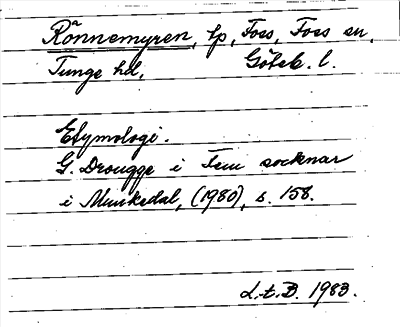 Rönnemyren, tp, Foss, Foss sn,
Tunge hd, Göteb. l.
Etymologi.
G. Drougge i Fem socknar
i Munkedal, (1980), s. 158.
L.t.B. 1983.